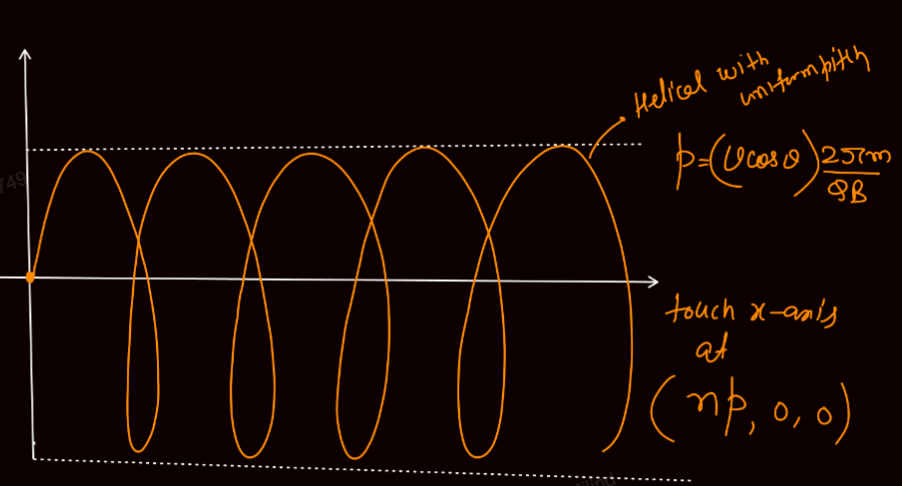 Helical with
uniform pitch
p=(vcosθ) 2πm
QB
touch x-axis
at
(np, 0, 0)
749